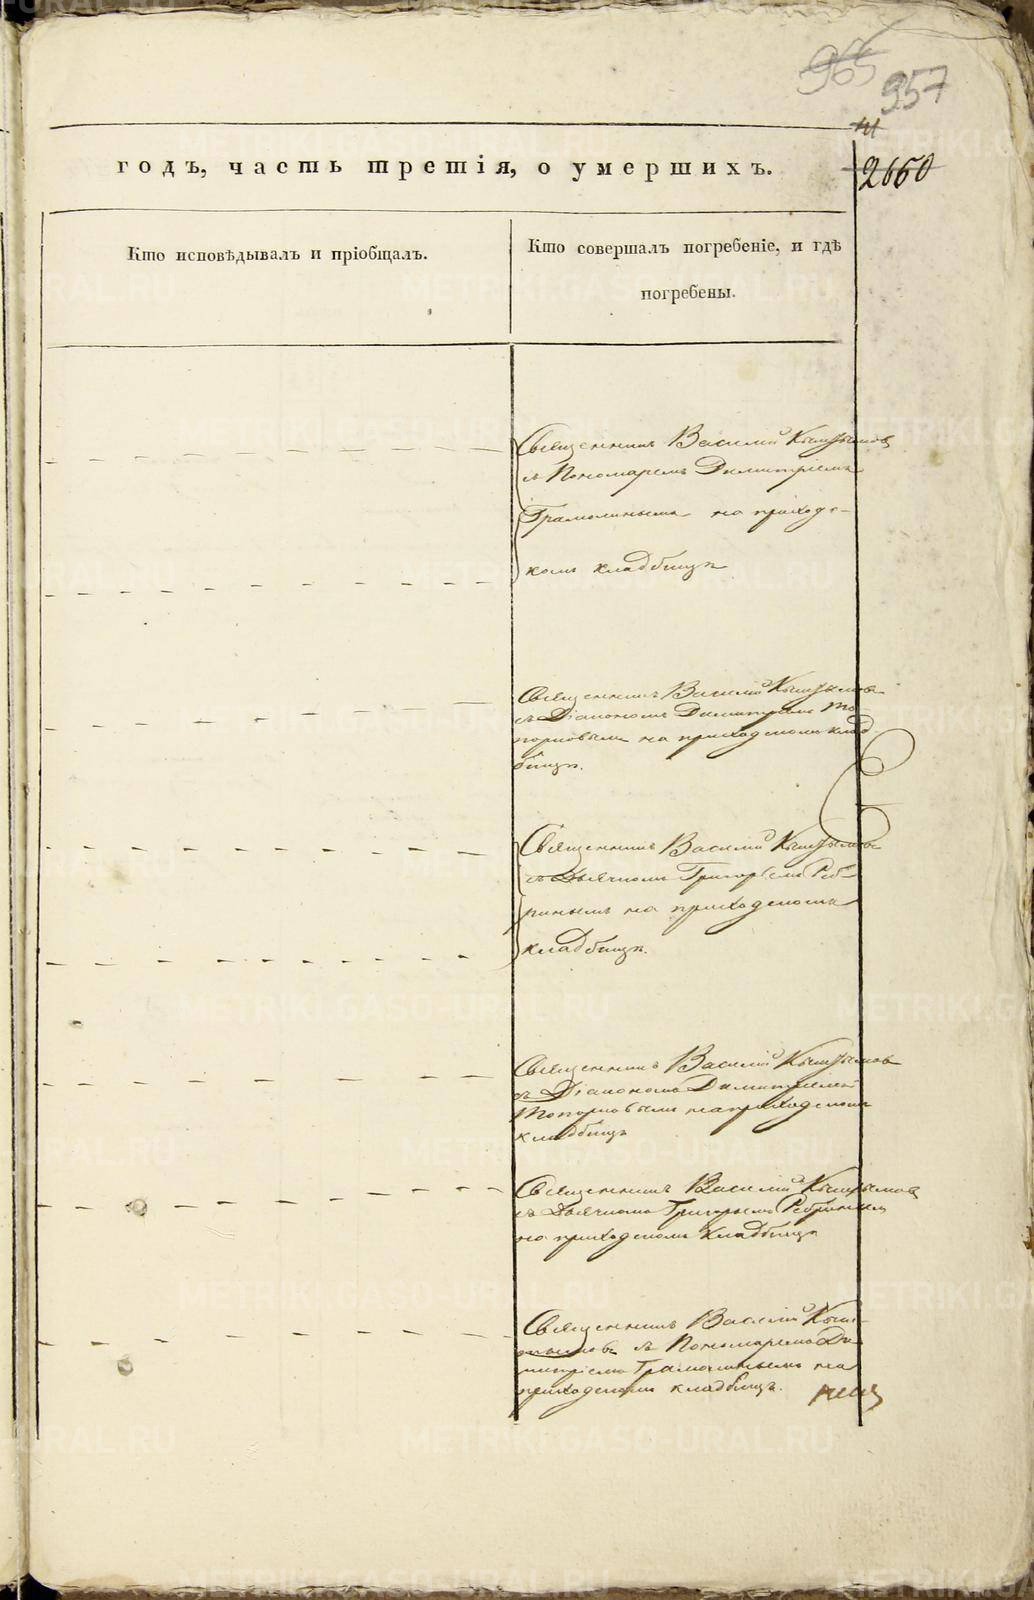 965
957
2660
годъ, часть третія, о умершихъ.
Кто исповѣдывалъ и пріобщалъ.
Кто совершалъ погребеніе, и гдѣ
погребены.
Священникъ Василій
съ Пономаремъ Димитріемъ
на приходс-
комъ кладбищѣ
Священникъ Василій
съ Діакономъ Димитріемъ То-
порковымъ на приходскомъ клад-
бищѣ.
Священникъ Василій
съ Дьячкомъ Григорьемъ Реб-
ринымъ на приходскомъ
кладбищѣ.
Священникъ Василій
съ Діакономъ Димитріемъ
Топорковымъ на приходскомъ
кладбищѣ
Священникъ Василій
съ Дьячкомъ Григорьемъ Ребринымъ
на приходскомъ кладбищѣ
Священникъ Василій
съ Пономаремъ Ди-
митріемъ на
приходскомъ кладбищѣ.
METRIKI.GASO-URAL.RU